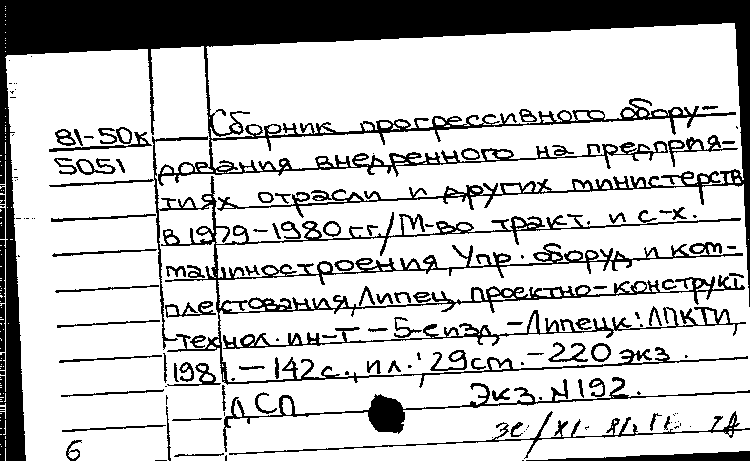 Сборник прогрессивного обору-
81-50к
5051
дования внедренного на предприя-
тиях отрасли и других министерств
в 1979-1980 гг./М-во тракт. и с-х.
машиностроения, Упр. оборуд и ком-
плектования, Липец. проектно-конструкт.
-технол. ин-т. - Б-еизд, - Липецк: ЛПКТИ,
1981. - 142 с., ил.; 29 см. - 220 экз.
ДСП. Экз. N192.
6